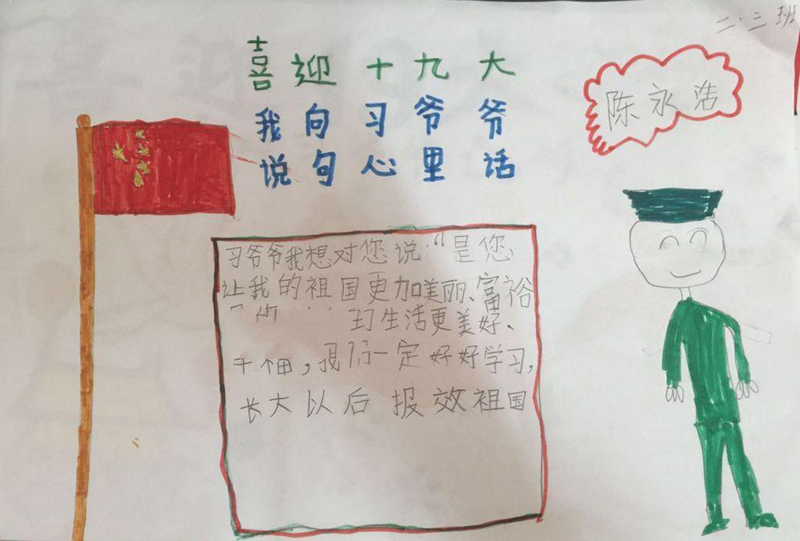 二.三班
喜迎十九大
陈永浩
我向习爷爷
说句心里话
习爷爷我想对您说“是您
让我的祖国更加美丽、富裕
生活更美好、
我们一定好好学习,
长大以后报效祖国